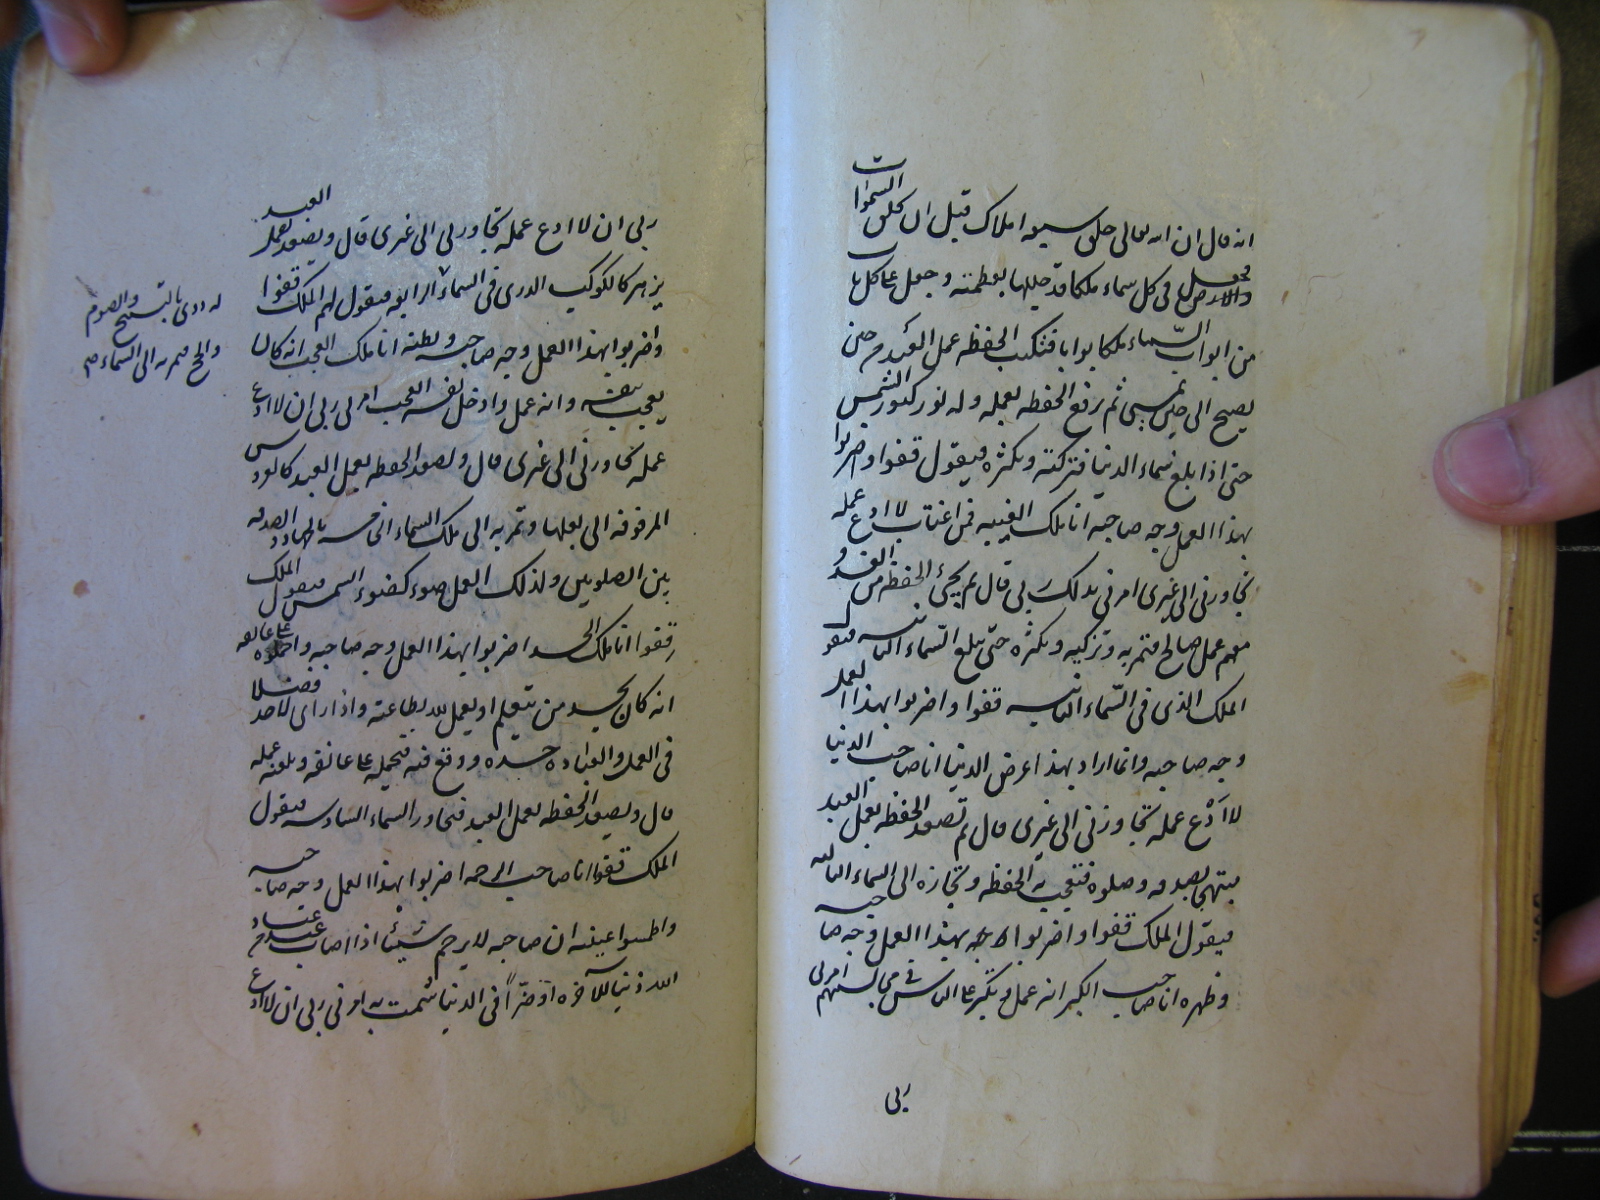 انه قال ان الله تعالى خلق سبعه املاك قبل ان يخلق السموات
والارض فجعل فى كل سماء ملكا قد جللها بعظمته وجعل على كل باب
من ابواب السماء ملكا بوابا فتكتب الحفظه عمل العبد من حين
يصبح الى حين يمسى ثم يرفع الحفظه بعمله وله نور كنور الشمس
حتى اذا بلغ سماء الدنيا فتزكيه وتكثره فيقول قفوا واضربوا
بهذا العمل وجه صاحبه انا ملك الغيبه فمن اغتاب لا ادع عمله
يجاوزنى الى غيرى امرنى بذلك ربى قال ثم يجئ الحفظه من الغد و
معهم عمل صالح فتمر به وتزكيه وتكثره حتى يبلغ السماء الثانيه فيقول
الملك الذى فى السماء الثانيه قفوا واضربوا بهذا العمل
وجه صاحبه وانما اراد بهذا عرض الدنيا انا صاحب الدنيا
لا ادع عمله يجاوزنى الى غيرى قال ثم تصعد الحفظه بعمل العبد
مبتهجا بصدقه وصلوه فتعجب به الحفظه وتجازه الى السماء الثالثه
فيقول الملك قفوا واضربوا بهذا العمل وجه صاحبه
وظهره انا صاحب الكبر انه عمل وتكبر على الناس فى مجالسهم امرنى
ربى
ربى ان لا ادع عمله يتجاوزنى الى غيرى قال ويصعد بعمل العبد
يزهر كالكوكب الدرى فى السماء الرابعه فيقول لهم الملك قفوا
له دوى بالتسبيح والصوم
والحج فمر به الى السماء
واضربوا بهذا العمل وجه صاحبه وبطنه انا ملك العجب انه كان
يعجب بنفسه وانه عمل وادخل نفسه العجب امرنى ربى ان لا ادع
عمله يتجاوزنى الى غيرى قال وتصعد الحفظه بعمل العبد كالعروس
المزفوفه الى بعلها وتمر به الى ملك السماء الخامسه بالجهاد والصدقه
بين الصلوتين ولذلك العمل ضوء كضوء الشمس فيقول الملك
قفوا انا ملك الحسد اضربوا بهذا العمل وجه صاحبه واحملوه على عاتقه
انه كان يحسد من يتعلم او يعمل لله بطاعته واذا راى لاحد فضلا
فى العمل والعباده حسده ووقع فيه فتحمله على عاتقه ويلعنه عمله
قال وتصعد الحفظه بعمل العبد فتجاوز السماء السادسه فيقول
الملك قفوا انا صاحب الرحمه اضربوا بهذا العمل وجه صاحبه
واطمسوا عينيه ان صاحبه لا يرحم شيئا اذا اصاب عبد من عباد
الله ذنبا للآخره او ضرا فى الدنيا شمت به امرنى ربى ان لا ادع